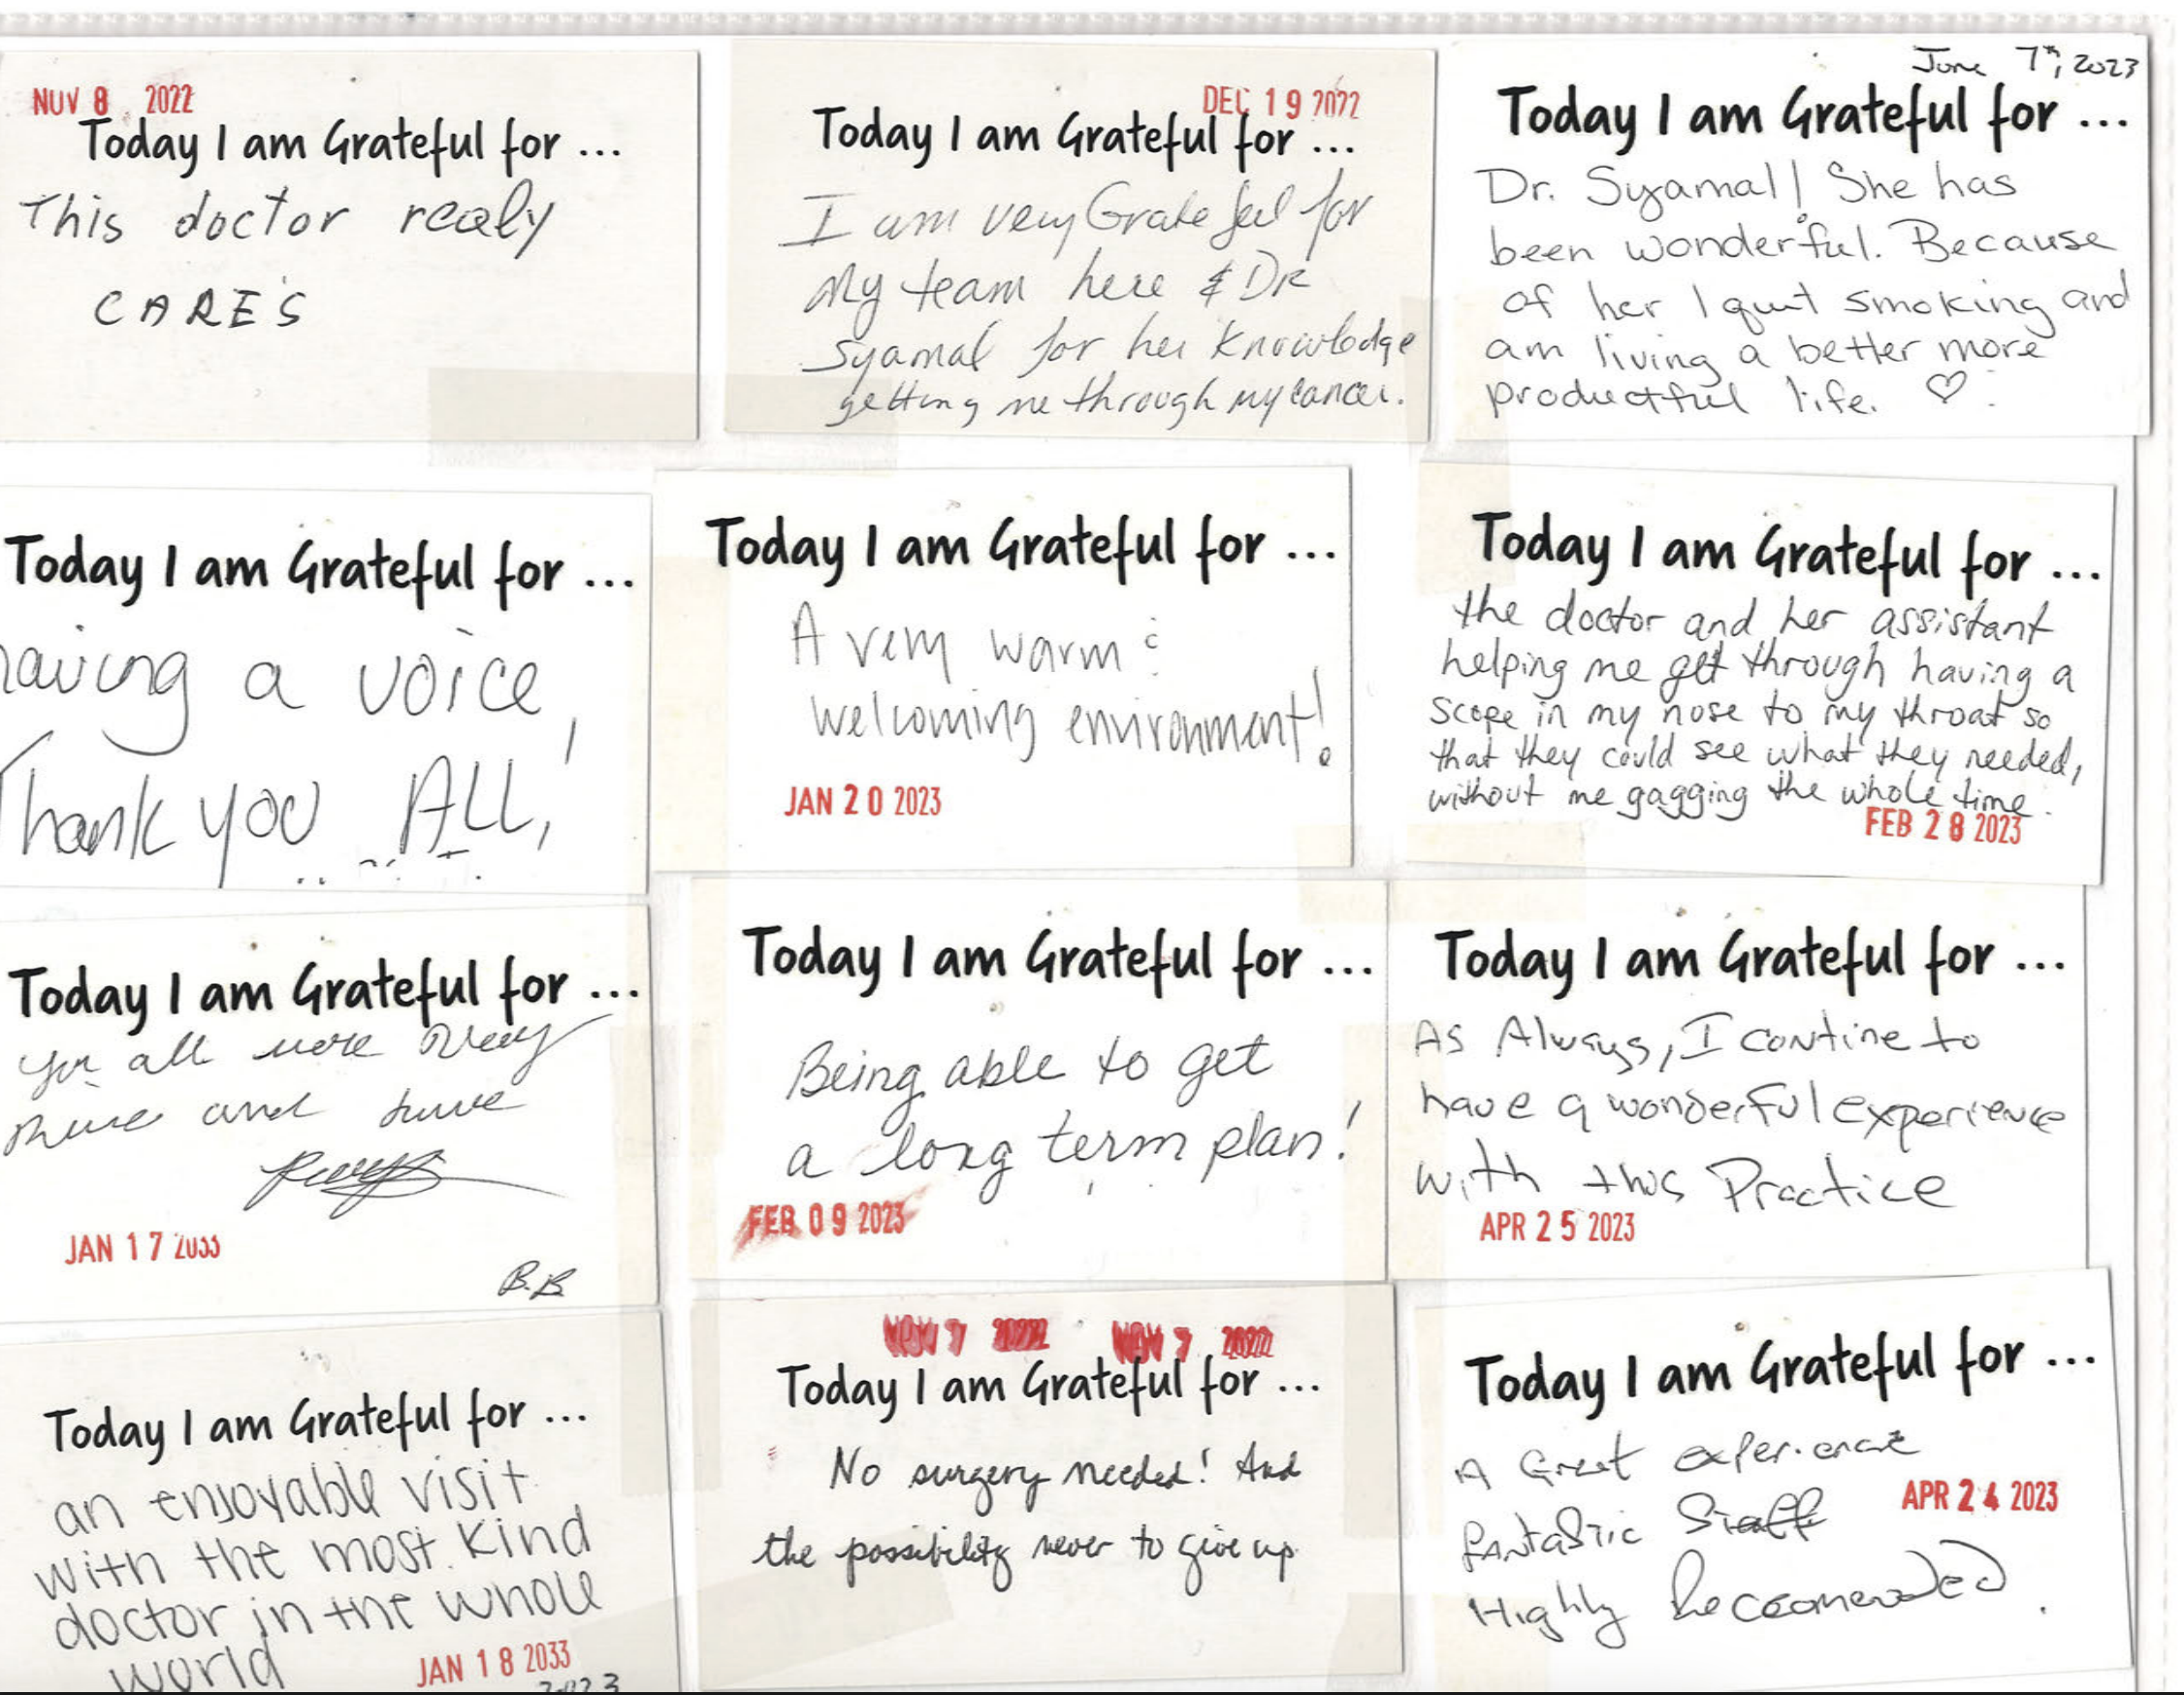 NUV 8 2022
Today I am Grateful for ...
This doctor realy
CARE'S
DEC 19 2022
Today I am Grateful for ...
I am very Grateful for
My team here & DR
Syamal for her knowledge
getting me through my cancer.
June 7th, 2023
Today I am Grateful for ...
Dr. Syamal! She has
been wonderful. Because
of her I quit smoking and
am living a better more
productful life. ♡
Today I am Grateful for ...
having a voice,
Thank you ALL,
Today I am Grateful for ...
A very warm &
welcoming environment!
JAN 20 2023
Today I am Grateful for ...
the doctor and her assistant
helping me get through having a
scope in my nose to my throat so
that they could see what they needed,
without me gagging the whole time.
FEB 28 2023
Today I am Grateful for ...
You all were Very
and
JAN 17 2033
B.B
Today I am Grateful for ...
Being able to get
a long term plan!
FEB 09 2023
Today I am Grateful for ...
As Always, I contine to
have a wonderful experience
with this Practice
APR 25 2023
Today I am Grateful for ...
an enjoyable visit
with the most kind
doctor in the whole
world
JAN 18 2033
2023
NOV 7 2022 NOV 7 2022
Today I am Grateful for ...
No surgery needed! And
the possibility never to give up
Today I am Grateful for ...
A Great experience
APR 24 2023
fantastic Staff
Highly Reccomended.